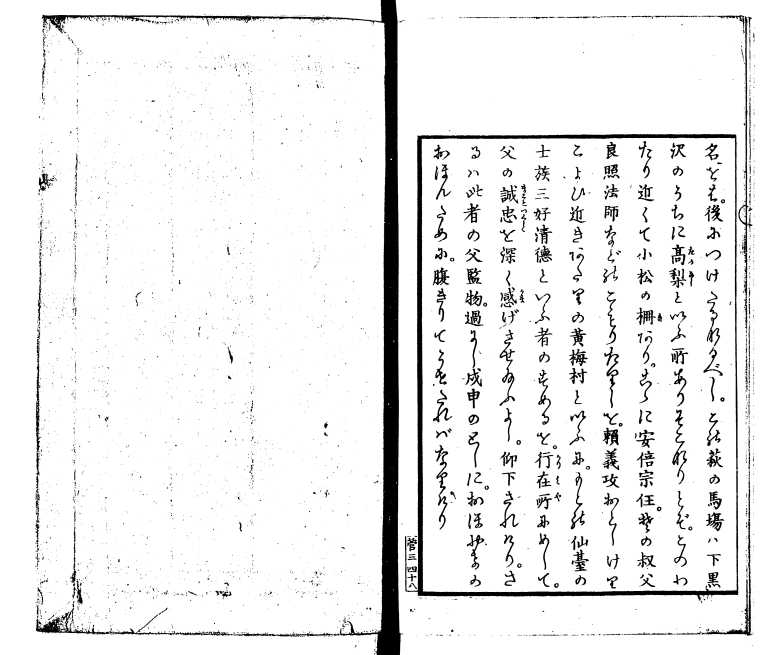 名をも。後につけたるなるべし。この萩の馬場ハ下黒
沢のうちに高梨といふ所ありそこなりとぞ。このわ
たり近くて小松の柵あり。こゝに安倍宗任。その叔父
良照法師などのこもりたりしを。頼義攻おとしけり
こよひ近きわたりの黄梅村といふに。もとの仙臺の
士族三好清德といふ者のすめるを。行在所にめして。
父の誠忠を深く感げさせ給ふよし。仰下されけり。さ
るハ此者の父監物。過にし戊申のとしに。おほやけの
おほんために。腹きりてうせたればなりけり
菅三 四十八